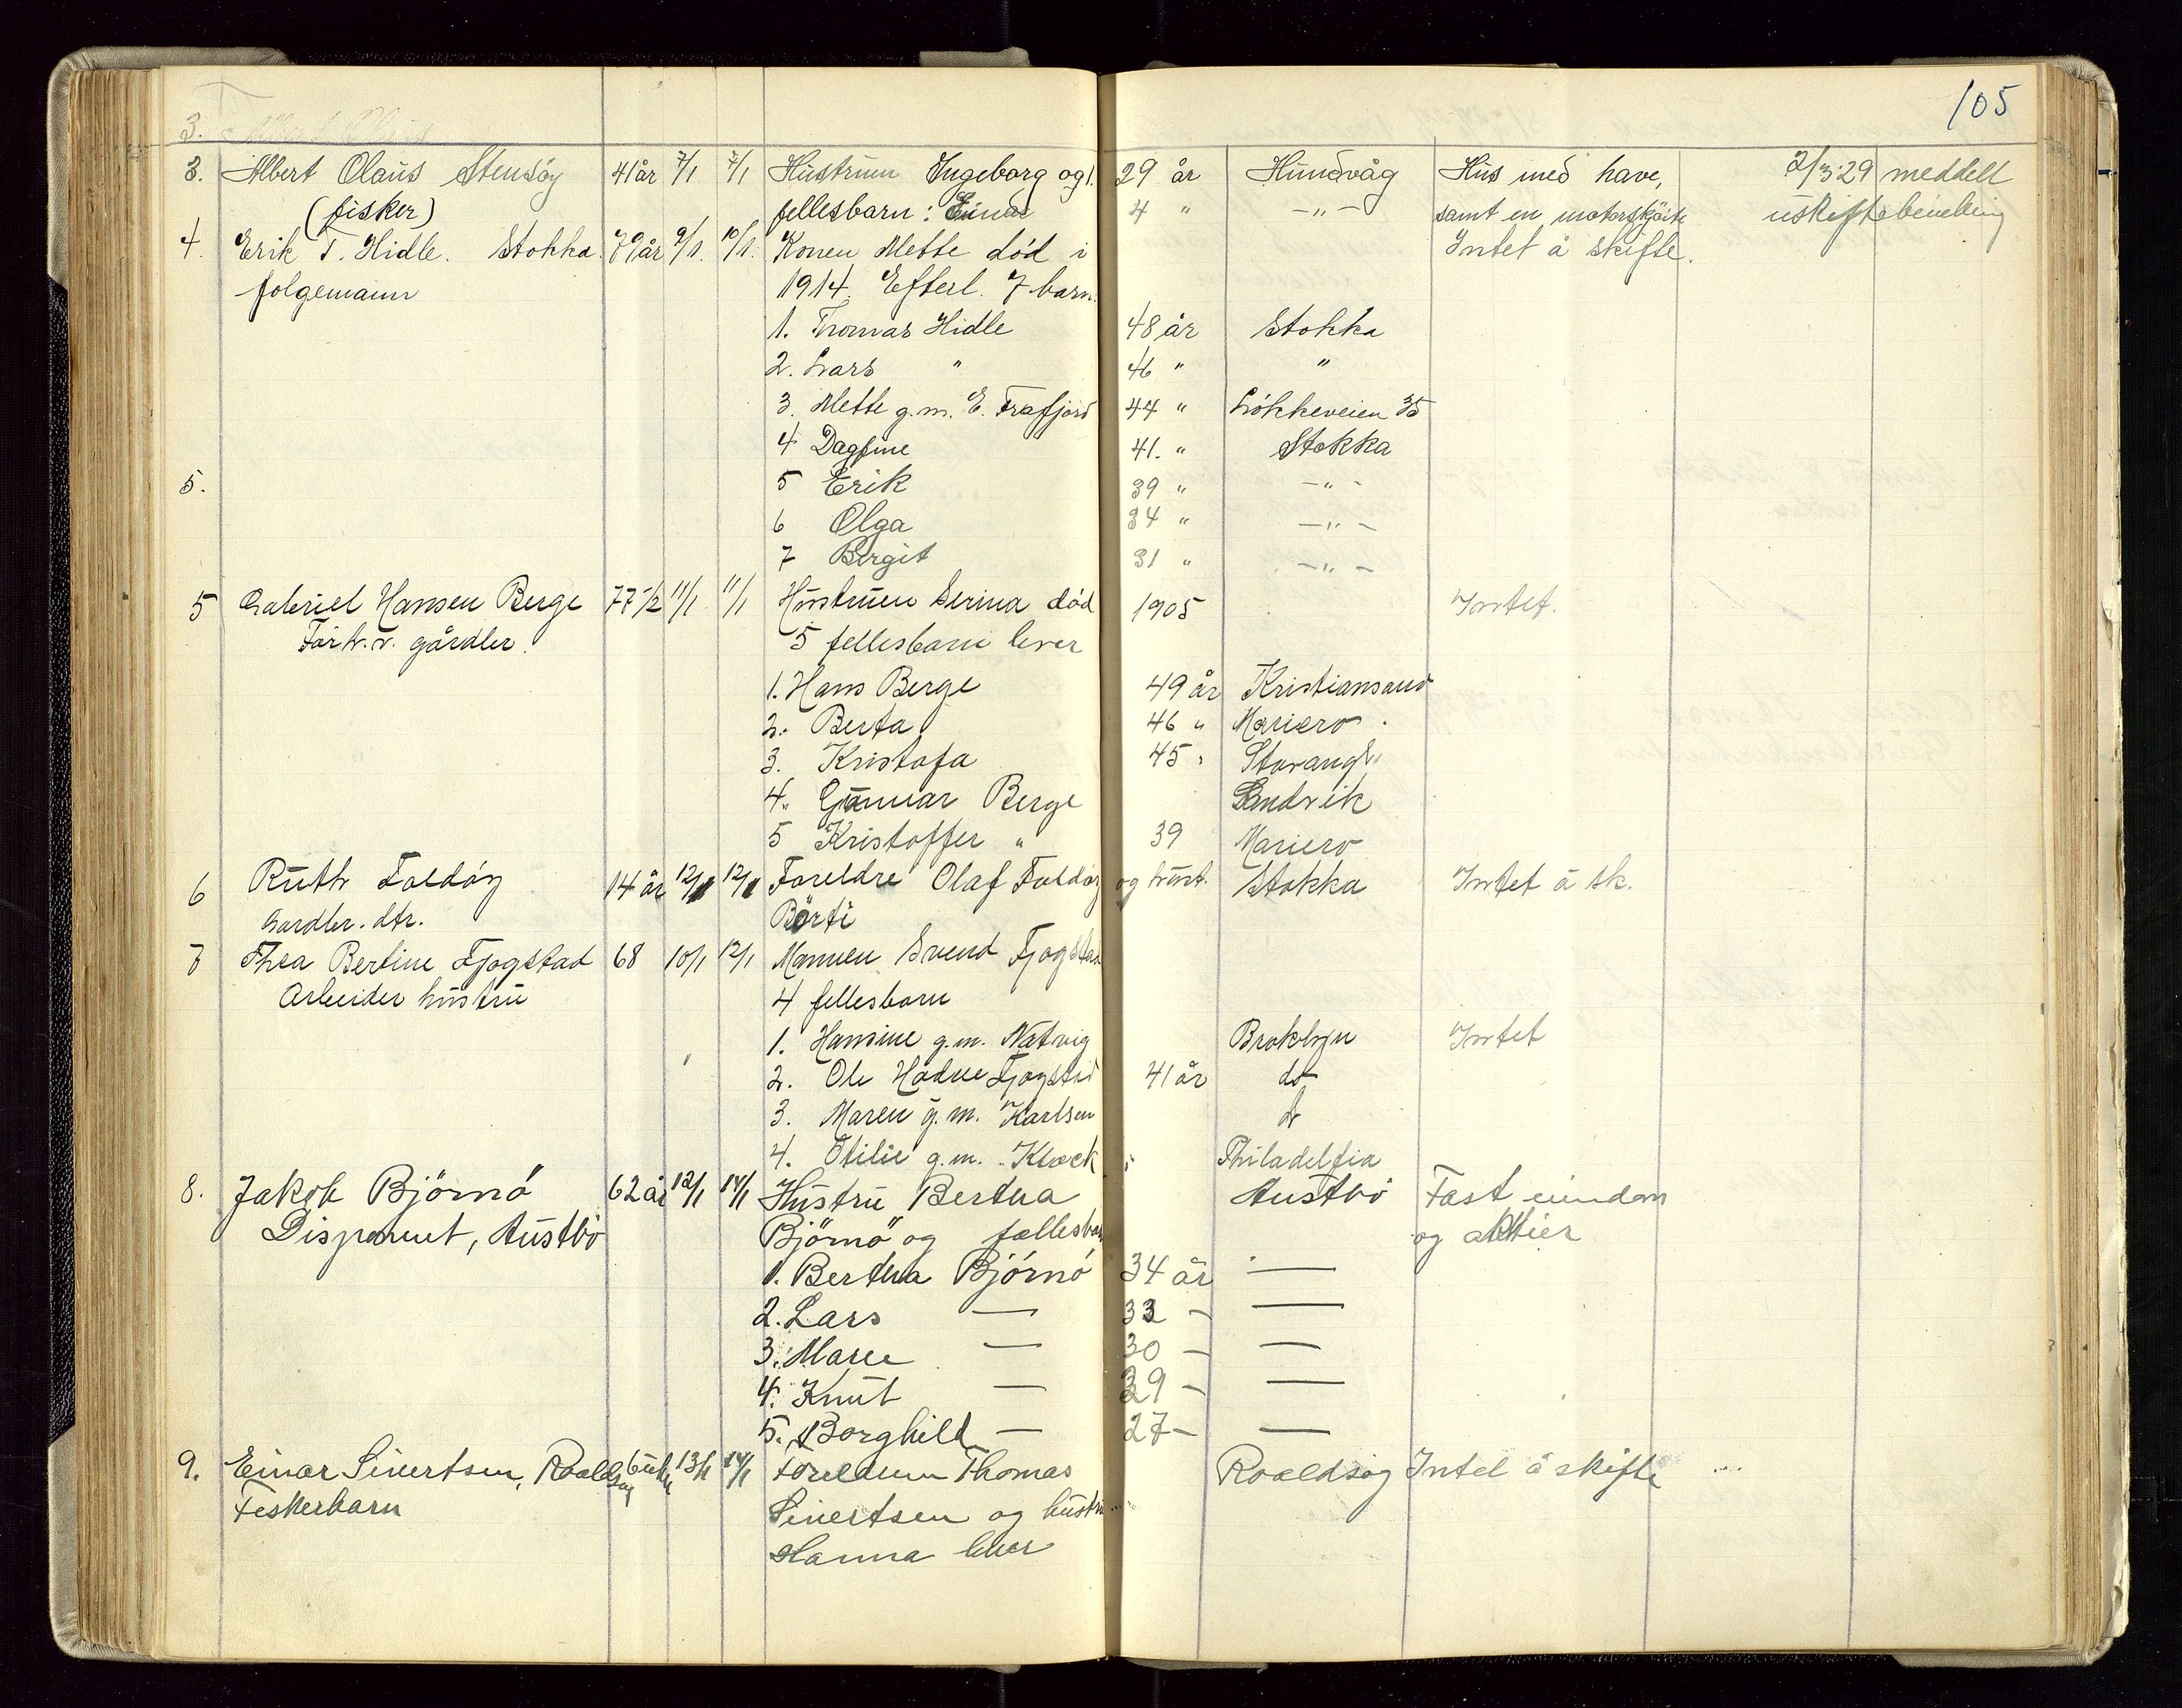 105
3.
3. Albert Olaus Stensöy 41 år 7/1 7/1 Hustruen Ingeborg og 1. 29 år Hundvåg Hus med have, 2/3 29 meddelt
(fisker) fellesbarn: Einar 4 " -"- samt en motorskjöite uskiftebevilling
4. Erik T. Hidle. Stokka. 79 år 9/1. 10/1. Konen Mette död i Intet å skifte.
folgemann 1914. Efterl. 7 barn.
1. Thomas Hidle 48 år Stokka
2. Lars " 46 " "
3. Mette g.m. E. Frafjord 44 " Lökkeveien 35
4 Dagfine 41. " Stokka
5. 5 Erik 39 " -"-
6 Olga 34 " -"-
7 Bergit 31 " -"-
5 Gabriel Hansen Berge 77 1/2 11/1 11/1 Hustruen Serina död 1905 Intet.
Forh.v. gårdbr. 5 fellesbarn lever
1. Hans Berge 49 år Kristiansand
2. Berta 46 " Mariero
3. Kristofa 45 " Stavang.
4. Gunnar Berge Sandvik
5 Kristoffer " 39 Mariero
6 Ruth Foldöy 14 år 12/1 12/1 Foreldre Olaf Foldöy og hust. Stokka Intet å sk.
Gardbr. dtr. Börti
7 Thea Bertine Fjogstad 68 10/1 12/1 Mannen Svend Fjogstad
Arbeider hustru 4 fellesbarn
1. Hansine g.m. Natvig Broklyn Intet
2. Ole Hodne Fjogstad 41 år do
3. Maren g.m. Karlsen do
4. Otilie g.m. Klock Philadelfia
8. Jakob Björnö 62 år 12/1 14/1 Hustru Bertha Austbö Fast eiendom
Disponent, Austbö Björnö og fællesbarn og aktier
1. Bertha Björnö 34 år —
2. Lars — 32 - —
3. Marie — 30 - —
4. Knut — 29 - —
5. Borghild — 27 - —
9. Einar Sivertsen, Roaldsöy 6 uker 13/1 14/1 Foreldrene Thomas Roaldsöy Intet å skifte
Fiskerbarn Sivertsen og hustru
Hanna lever